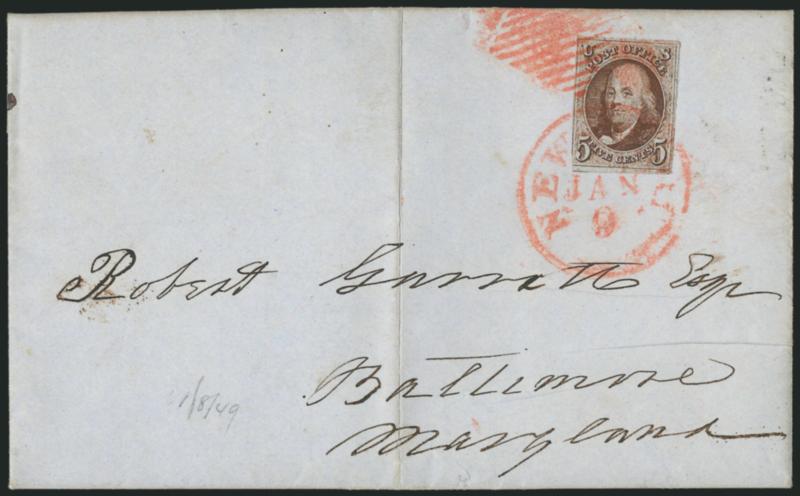 U S
POST OFFICE
5 FIVE CENTS 5
NEW
JAN
9
Robert Garratt Esqr
Baltimore
Maryland
1/8/49